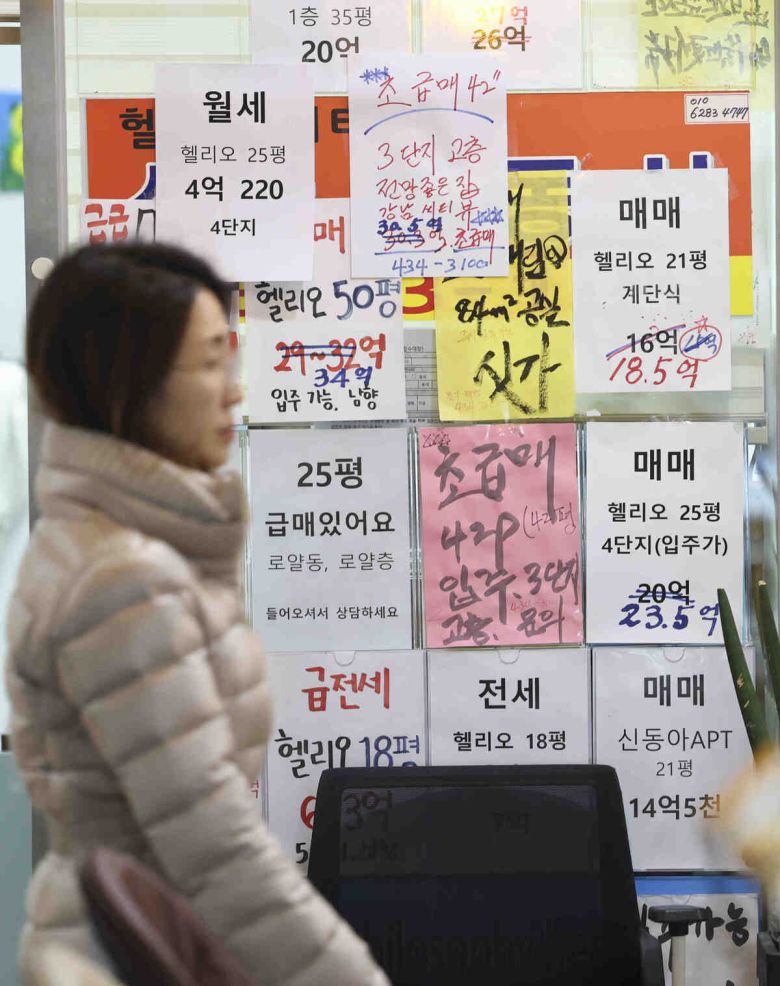 1층 35평
20억
27억
26억
010
6283 4747
헬
월세
헬리오 25평
4억 220
4단지
초급매 42"
3단지 고층
전망좋은 집
강남 씨티뷰
30.5억
초급매
434-3100
매매
헬리오 21평
계단식
16억
18.5억
급급
매
헬리오 50평
29~32억
34억
입주 가능. 남향
84m² 공실
싯가
25평
급매있어요
로얄동, 로얄층
들어오셔서 상담하세요
초급매
42P (42평
입주. 3단지
고층. 문의
매매
헬리오 25평
4단지(입주가)
20억
23.5억
급전세
헬리오 18평
6
3억
전세
헬리오 18평
매매
신동아APT
21평
14억5천
가능